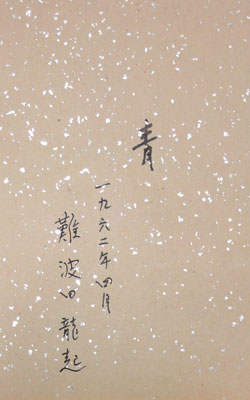 青
一九六二年四月
難波田龍起